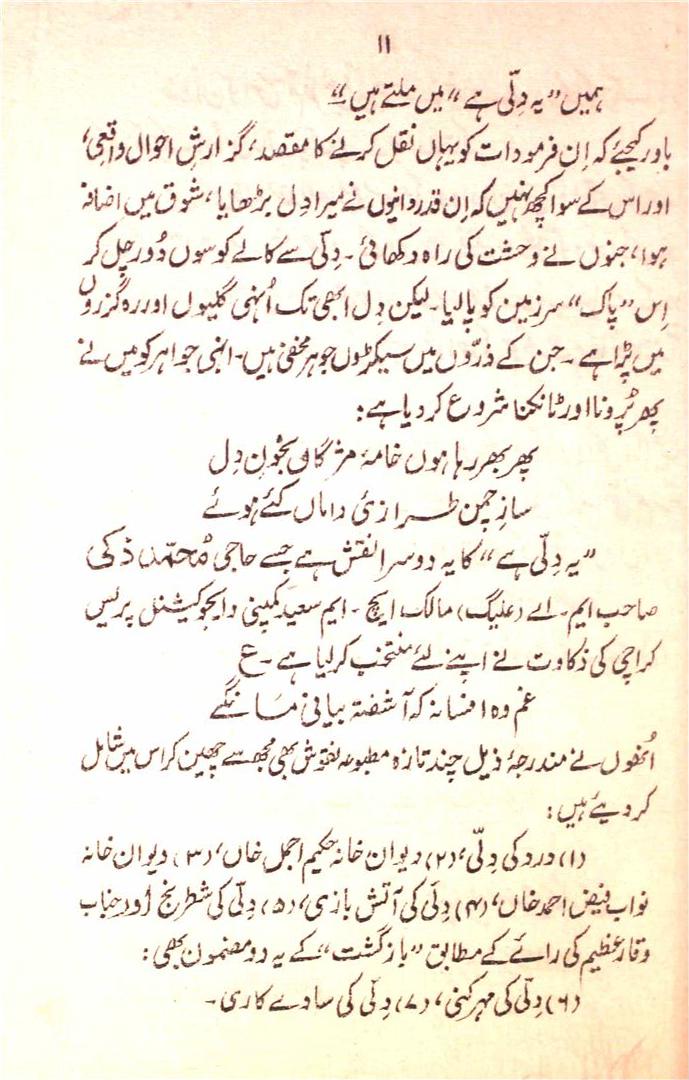 ۱۱
ہمیں ”یہ دِلّی ہے“ میں ملتے ہیں“
باور کیجئے کہ اِن فرمودات کو یہاں نقل کرنے کا مقصد، گزارشِ احوال واقعی،
اور اس کے سوا کچھ نہیں کہ اِن قدردانیوں نے میرا دِل بڑھایا، شوق میں اضافہ
ہوا، جنوں نے وحشت کی راہ دکھائی۔ دِلّی سے کالے کوسوں دُور چل کر
اِس ”پاک“ سرزمین کو پا لیا۔ لیکن دِل ابھی تک اُنہی گلیوں اور رہ گزروں
میں پڑا ہے۔ جن کے ذرّوں میں سیکڑوں جوہر مخفی ہیں۔ انہی جواہر کو میں نے
پھر پُرونا اور ٹانکنا شروع کر دیا ہے:
پھر بھر رہا ہوں خامۂ مژگاں بخونِ دل
سازِ چمن طرازیٔ داماں کئے ہوئے
”یہ دِلّی ہے“ کا یہ دوسرا نقش ہے جسے حاجی مُحمّد ذکی
صاحب ایم۔ اے (علیگ) مالک ایچ۔ ایم سعید کمپنی و ایجوکیشنل پریس
کراچی کی ذکاوت نے اپنے لئے منتخب کر لیا ہے۔ ع
غم وہ افسانہ کہ آشفتہ بیانی مانگے
اُنھوں نے مندرجۂ ذیل چند تازہ مطبوعہ نقوش بھی مجھ سے چھین کر اس میں شامل
کر دیئے ہیں:
(۱) درد کی دِلّی، (۲) دیوان خانہ حکیم اجمل خاں، (۳) دیوان خانہ
نواب فیض احمد خاں، (۴) دِلّی کی آتش بازی، (۵) دِلّی کی شطرنج اور جناب
وقار عظیم کی رائے کے مطابق ”بازگشت“ کے یہ دو مضمون بھی:
(۶) دِلّی کی مہر کنی، (۷) دِلّی کی سادے کاری۔